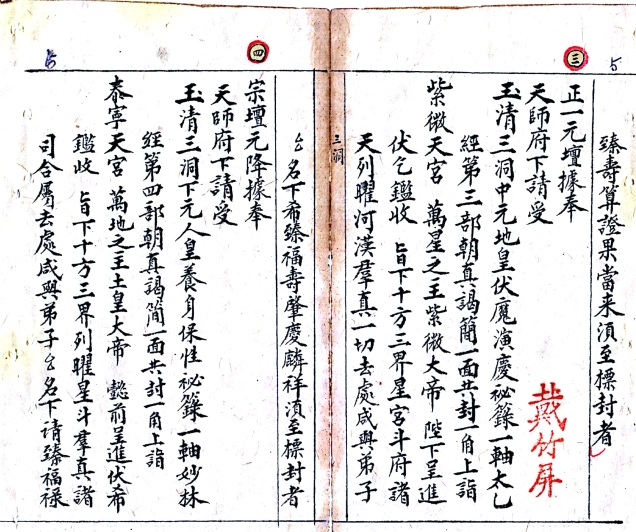 5
三
臻壽算證果當来湏至標封者
正一元壇據奉
天師府下請受
玉清三洞中元地皇伏魔演慶祕籙一軸太乙
經第三部朝真謁簡一面共封一角上詣
紫微天宮 萬星之王紫微大帝 陛下呈進
伏乞鑑收 旨下十方三界星宮斗府諸
天列曜河漢羣真一切去處咸與弟子
戴竹屏
三洞
厶名下希臻福壽肇慶麟祥湏至標封者
四
宗壇元降據奉
天師府下請受
玉清三洞下元人皇養身保性祕籙一軸妙林
經第四部朝真謁簡一面共封一角上詣
泰寧天宮 萬地之王土皇大帝 懿前呈進伏希
鑑收 旨下十方三界列曜星斗羣真諸
司合屬去處咸與弟子厶名下请臻福禄